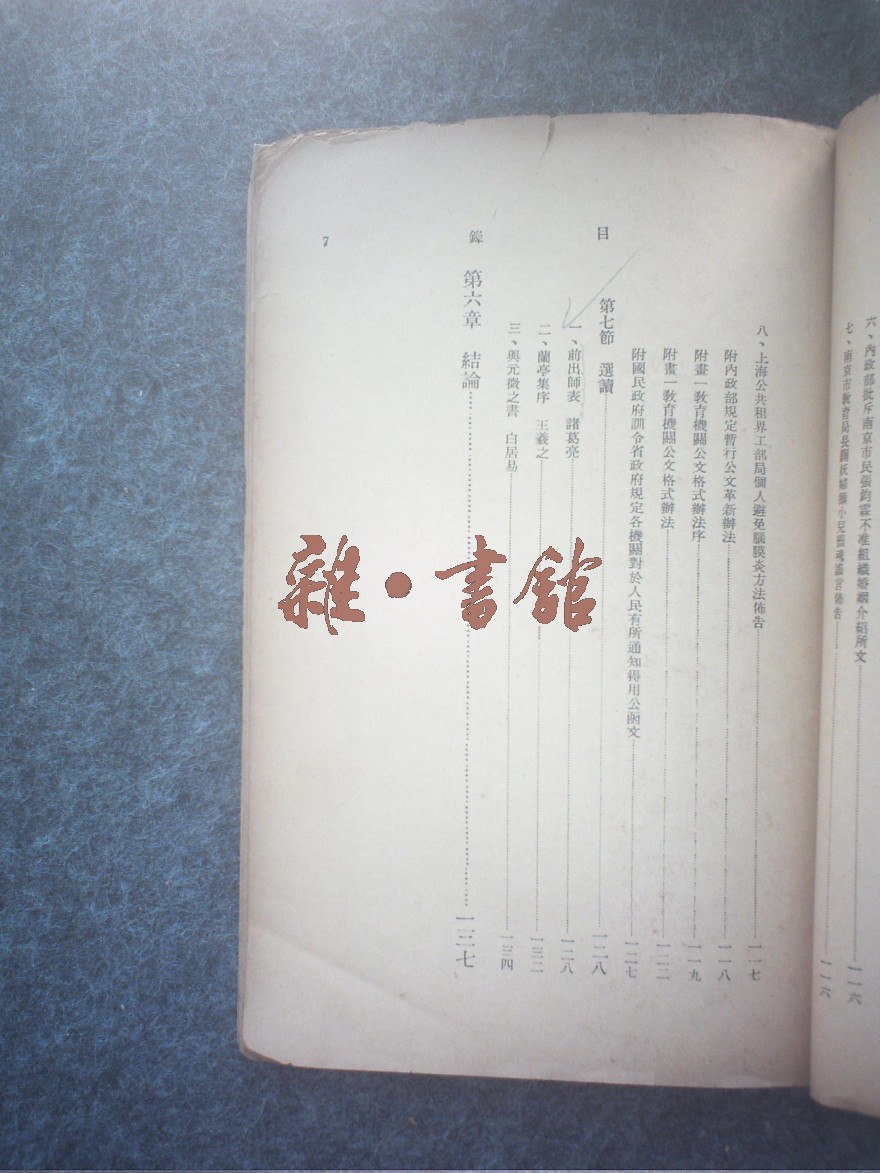 六、內政部批斥南京市民張鈞霖不准組織婚姻介紹所文 一一六
七、南京市教育局長闢妖婦攝小兒靈魂謠言佈告 一一六
八、上海公共租界工部局個人避免腦膜炎方法佈告 一一七
附內政部規定暫行公文革新辦法 一一八
附畫一教育機關公文格式辦法序 一一九
附畫一教育機關公文格式辦法 一二二
附國民政府訓令省政府規定各機關對於人民有所通知得用公函文 一二七
第七節 選讀 一二八
一、前出師表 諸葛亮 一二八
二、蘭亭集序 王羲之 一三二
三、與元微之書 白居易 一三四
第六章 結論 一三七
目錄
7
雜·書館